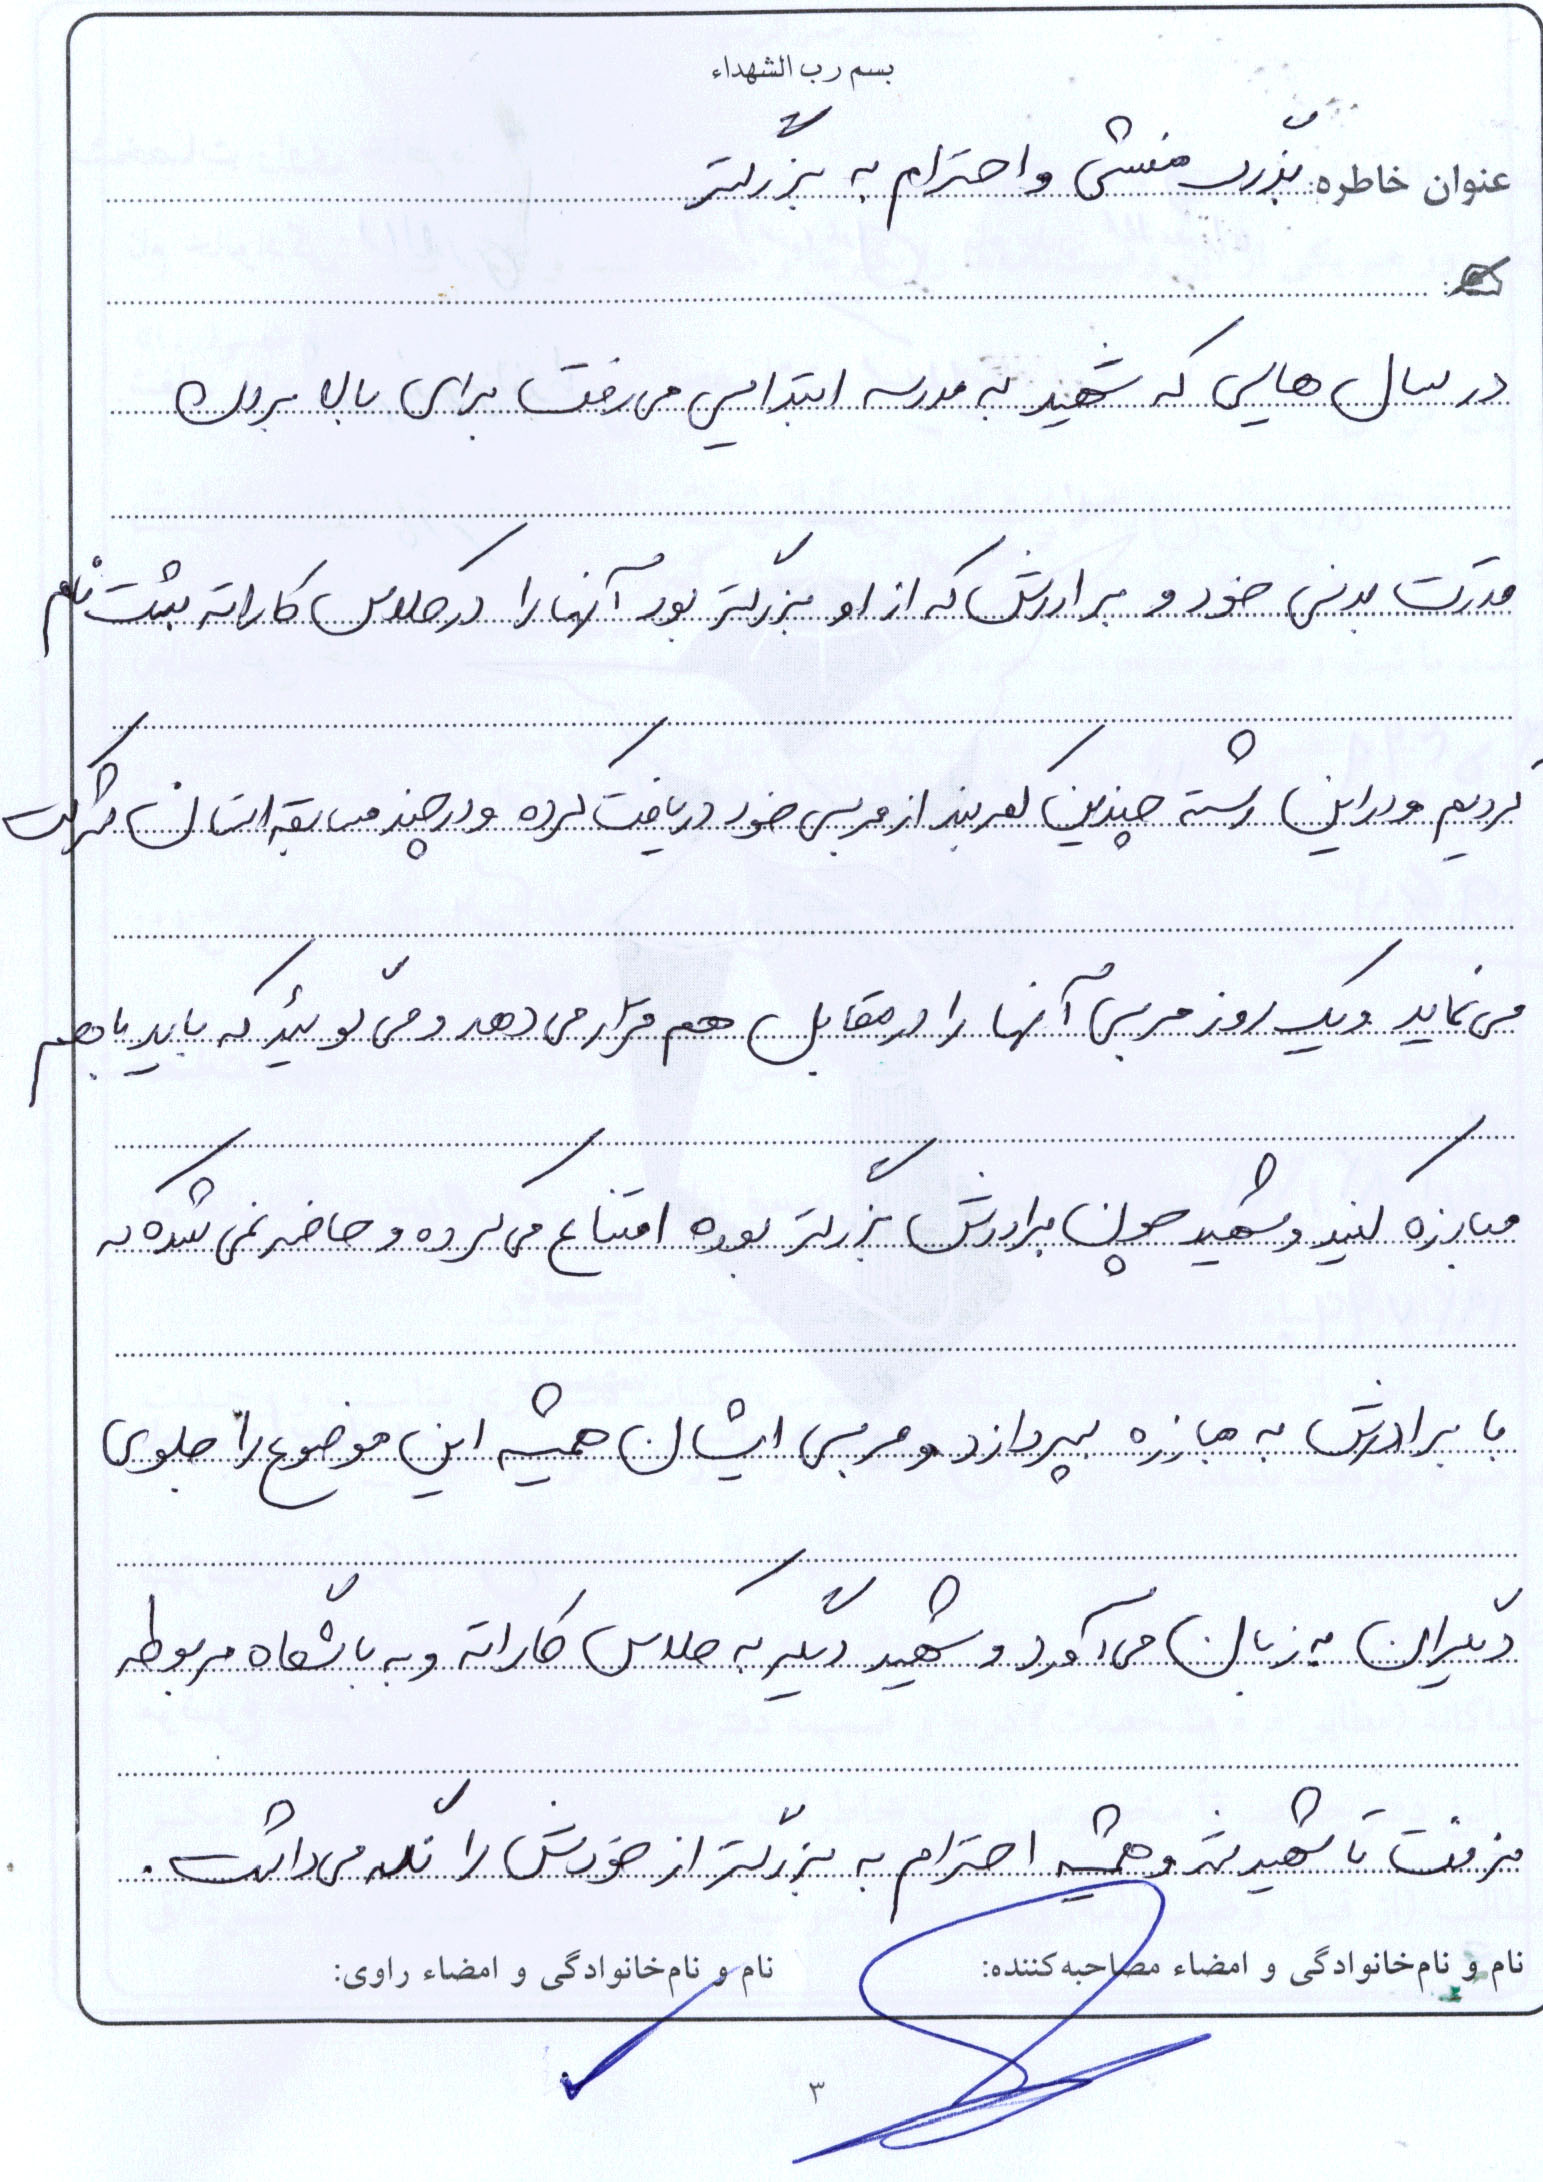 بسم رب الشهداء
عنوان خاطره: بزرگ منشی و احترام به بزرگتر
در سال هایی که شهید به مدرسه ابتدایی می رفت برای بالا بردن
قدرت بدنی خود و برادرش که از او بزرگتر بود آنها را در کلاس کاراته ثبت نام
کردیم و در این رشته چندین کمربند از مربی خود دریافت کرده و در چند مسابقه استان شرکت
می نماید و یک روز مربی آنها را در مقابل هم قرار می دهد و می گویند که باید با هم
مبارزه کنید و شهید چون برادرش بزرگتر بوده امتناع می کرده و حاضر نمی شده که
با برادرش به مبارزه بپردازد و مربی ایشان همیشه این موضوع را جلوی
دیگران به زبان می آورد و شهید دیگر به کلاس کاراته و به باشگاه مربوطه
نرفت تا شهید شد و همیشه احترام به بزرگتر از خودش را نگه می داشت.
نام و نام‌خانوادگی و امضاء مصاحبه‌کننده: نام و نام‌خانوادگی و امضاء راوی:
۳